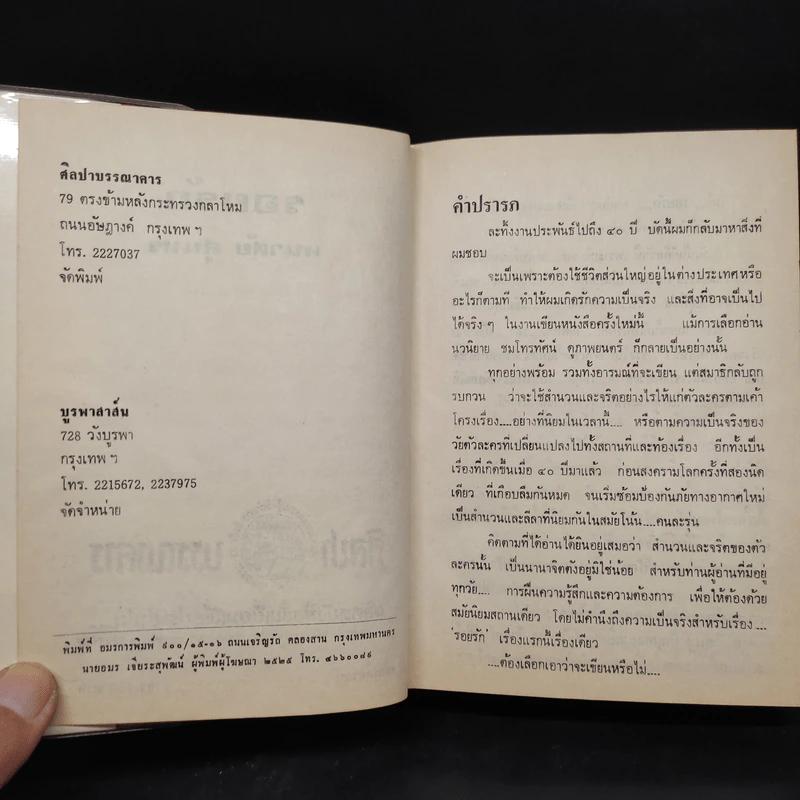 ศิลปาบรรณาคาร
79 ตรงข้ามหลังกระทรวงกลาโหม
ถนนอัษฎางค์ กรุงเทพ ฯ
โทร. 2227037
จัดพิมพ์
บูรพาสาส์น
728 วังบูรพา
กรุงเทพ ฯ
โทร. 2215672, 2237975
จัดจำหน่าย
พิมพ์ที่ อมรการพิมพ์ ๙๐๐/๑๕-๑๖ ถนนเจริญรัถ คลองสาน กรุงเทพมหานคร
นายอมร เจียระสุพัฒน์ ผู้พิมพ์ผู้โฆษณา ๒๕๒๕ โทร. ๔๖๖๐๐๔๙
คำปรารภ
ละทิ้งงานประพันธ์ไปถึง ๔๐ ปี บัดนี้ผมก็กลับมาหาสิ่งที่
ผมชอบ
จะเป็นเพราะต้องใช้ชีวิตส่วนใหญ่อยู่ในต่างประเทศหรือ
อะไรก็ตามที ทำให้ผมเกิดรักความเป็นจริง และสิ่งที่อาจเป็นไป
ได้จริง ๆ ในงานเขียนหนังสือครั้งใหม่นี้ แม้การเลือกอ่าน
นวนิยาย ชมโทรทัศน์ ดูภาพยนตร์ ก็กลายเป็นอย่างนั้น
ทุกอย่างพร้อม รวมทั้งอารมณ์ที่จะเขียน แต่สมาธิกลับถูก
รบกวน ว่าจะใช้สำนวนและจริตอย่างไรให้แก่ตัวละครตามเค้า
โครงเรื่อง....อย่างที่นิยมในเวลานี้.... หรือตามความเป็นจริงของ
วัยตัวละครที่เปลี่ยนแปลงไปทั้งสถานที่และท้องเรื่อง อีกทั้งเป็น
เรื่องที่เกิดขึ้นเมื่อ ๔๐ ปีมาแล้ว ก่อนสงครามโลกครั้งที่สองนิด
เดียว ที่เกือบลืมกันหมด จนเริ่มซ้อมป้องกันภัยทางอากาศใหม่
เป็นสำนวนและลีลาที่นิยมกันในสมัยโน้น....คนละรุ่น
คิดตามที่ได้อ่านได้ยินอยู่เสมอว่า สำนวนและจริตของตัว
ละครนั้น เป็นนานาจิตตังอยู่มิใช่น้อย สำหรับท่านผู้อ่านที่มีอยู่
ทุกวัย.... การฝืนความรู้สึกและความต้องการ เพื่อให้ต้องด้วย
สมัยนิยมสถานเดียว โดยไม่คำนึงถึงความเป็นจริงสำหรับเรื่อง....
'รอยรัก' เรื่องแรกนี้เรื่องเดียว
....ต้องเลือกเอาว่าจะเขียนหรือไม่....